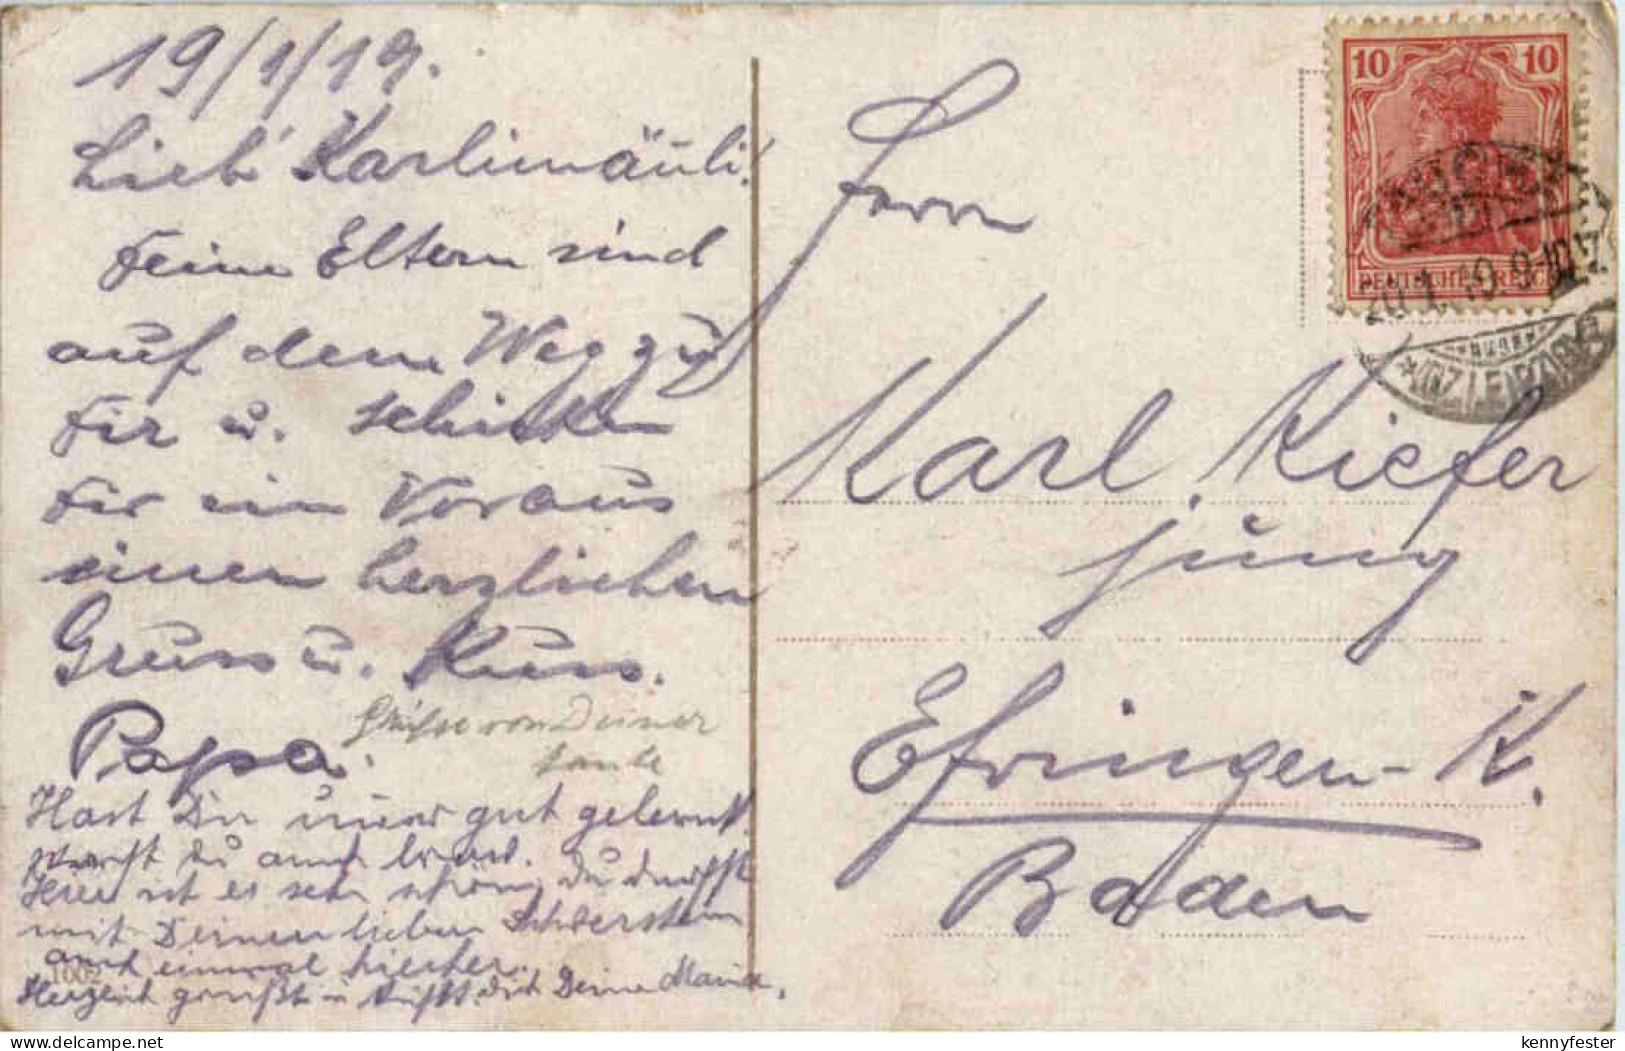 19/1/19.
Lieb' Karlimäuli!
Deine Eltern sind
auf dem Weg zu
Dir u. schicken
Dir ein Voraus
einen herzlichen
Gruss u. Kuss.
Papa.
Grüsse von Deiner
Tante
Hast Du immer gut gelernt.
Warst du auch brav.
Hier ist es sehr schön, du darfst
mit Deinen lieben Schwestern
auch einmal hierher.
Herzlich grüßt u küßt dich Deine Mama.
1002
10 10
DEUTSCHES REICH
20.1.19. 9-10 V.
(BZ. LEIPZIG)
Herrn
Karl Kiefer
jung
Efringen-K.
Baden
kennyfester